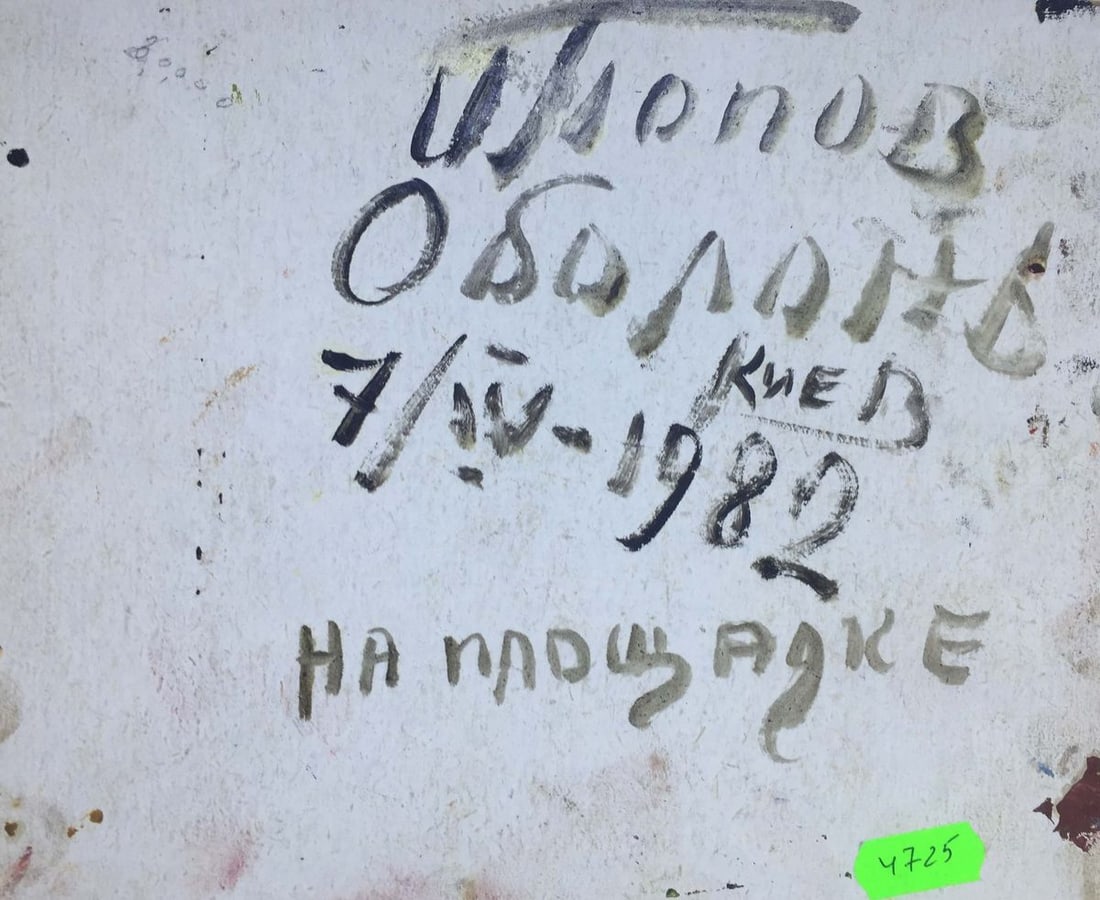 Цюпов
Оболонь
Киев
7/IV-1982
на площадке
4725